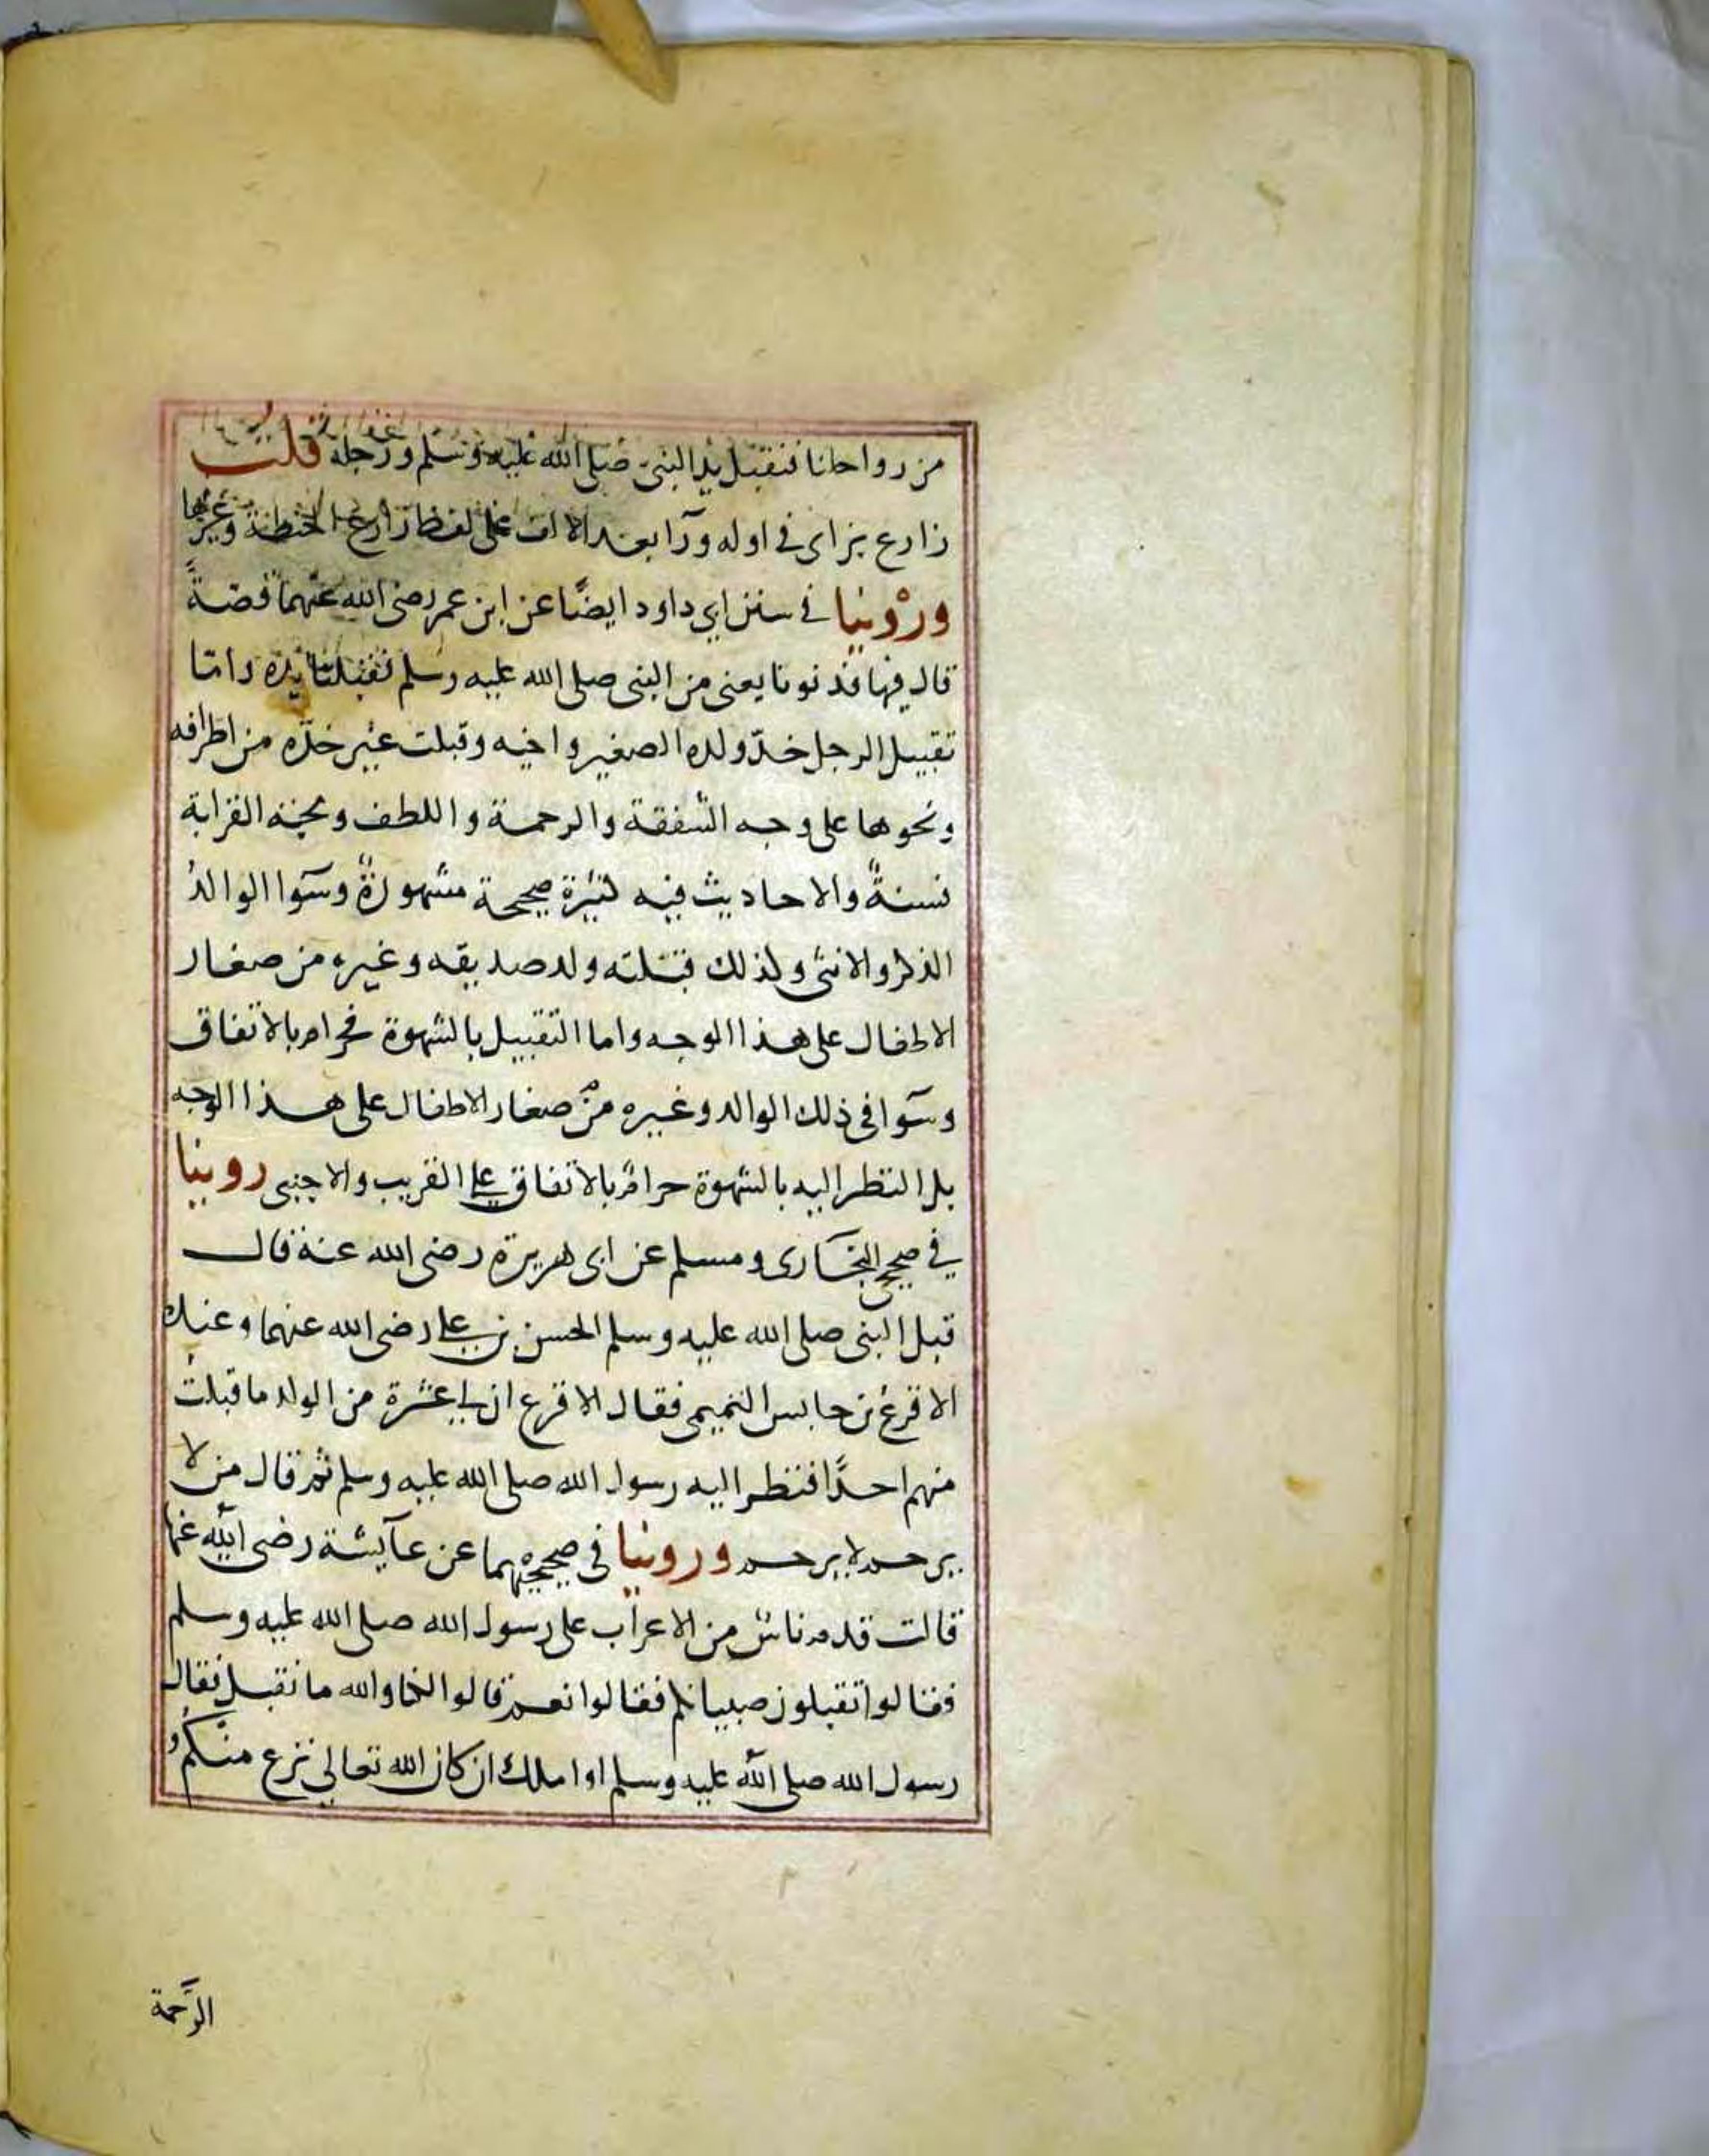 من رواحلنا فنقبل يد النبي صلى الله عليه وسلم ورجله قلت
زارع بزاى في اوله ورآ بعد الالف على لفظ زارع الحنطة وغيرها
وروينا في سنن ابي داود ايضًا عن ابن عمر رضى الله عنهما قصةً
قال فيها فدنونا يعنى من النبى صلى الله عليه وسلم فقبلنا يده واما
تقبيل الرجل خدّ ولده الصغير واخيه وقبلت غير خدّه من اطرافه
ونحوها على وجه الشفقة والرحمة واللطف ومحبة القرابة
فسنةٌ والاحاديث فيه كثيرة صحيحة مشهورةٌ وسوآ الوالدُ
الذكر والانثى وكذلك قبلته ولد صديقه وغيره من صغار
الاطفال على هذا الوجه واما التقبيل بالشهوة فحرام بالاتفاق
وسوآ في ذلك الوالد وغيره من صغار الاطفال على هذا الوجه
بل النظر اليه بالشهوة حرامٌ بالاتفاق على القريب والاجنبى روينا
في صحيح البخارى ومسلم عن ابى هريرة رضى الله عنه قال
قبل النبى صلى الله عليه وسلم الحسن بن على رضى الله عنهما وعنده
الاقرع بن حابس التميمى فقال الاقرع ان لي عشرة من الولد ما قبلتُ
منهم احدًا فنظر اليه رسول الله صلى الله عليه وسلم ثم قال من لا
يرحم لا يرحم وروينا في صحيحيهما عن عآيشة رضى الله عنها
قالت قدم ناسٌ من الاعراب على رسول الله صلى الله عليه وسلم
فقالوا تقبلون صبيانكم فقالوا نعم قالوا لكنا والله ما نقبل فقال
رسول الله صلى الله عليه وسلم او املك ان كان الله تعالى نزع منكمُ
الرَّحمة